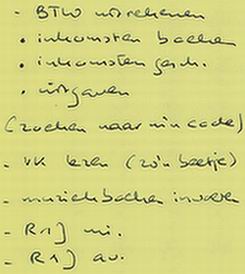 - BTW uitrekenen
• inkomsten boeken
• inkomsten gesch.
• uitgaven
(zoeken naar wincode)
- VK lezen (zo'n beetje)
- muziekboeken invoeren
- R1J mi.
- R1J av.